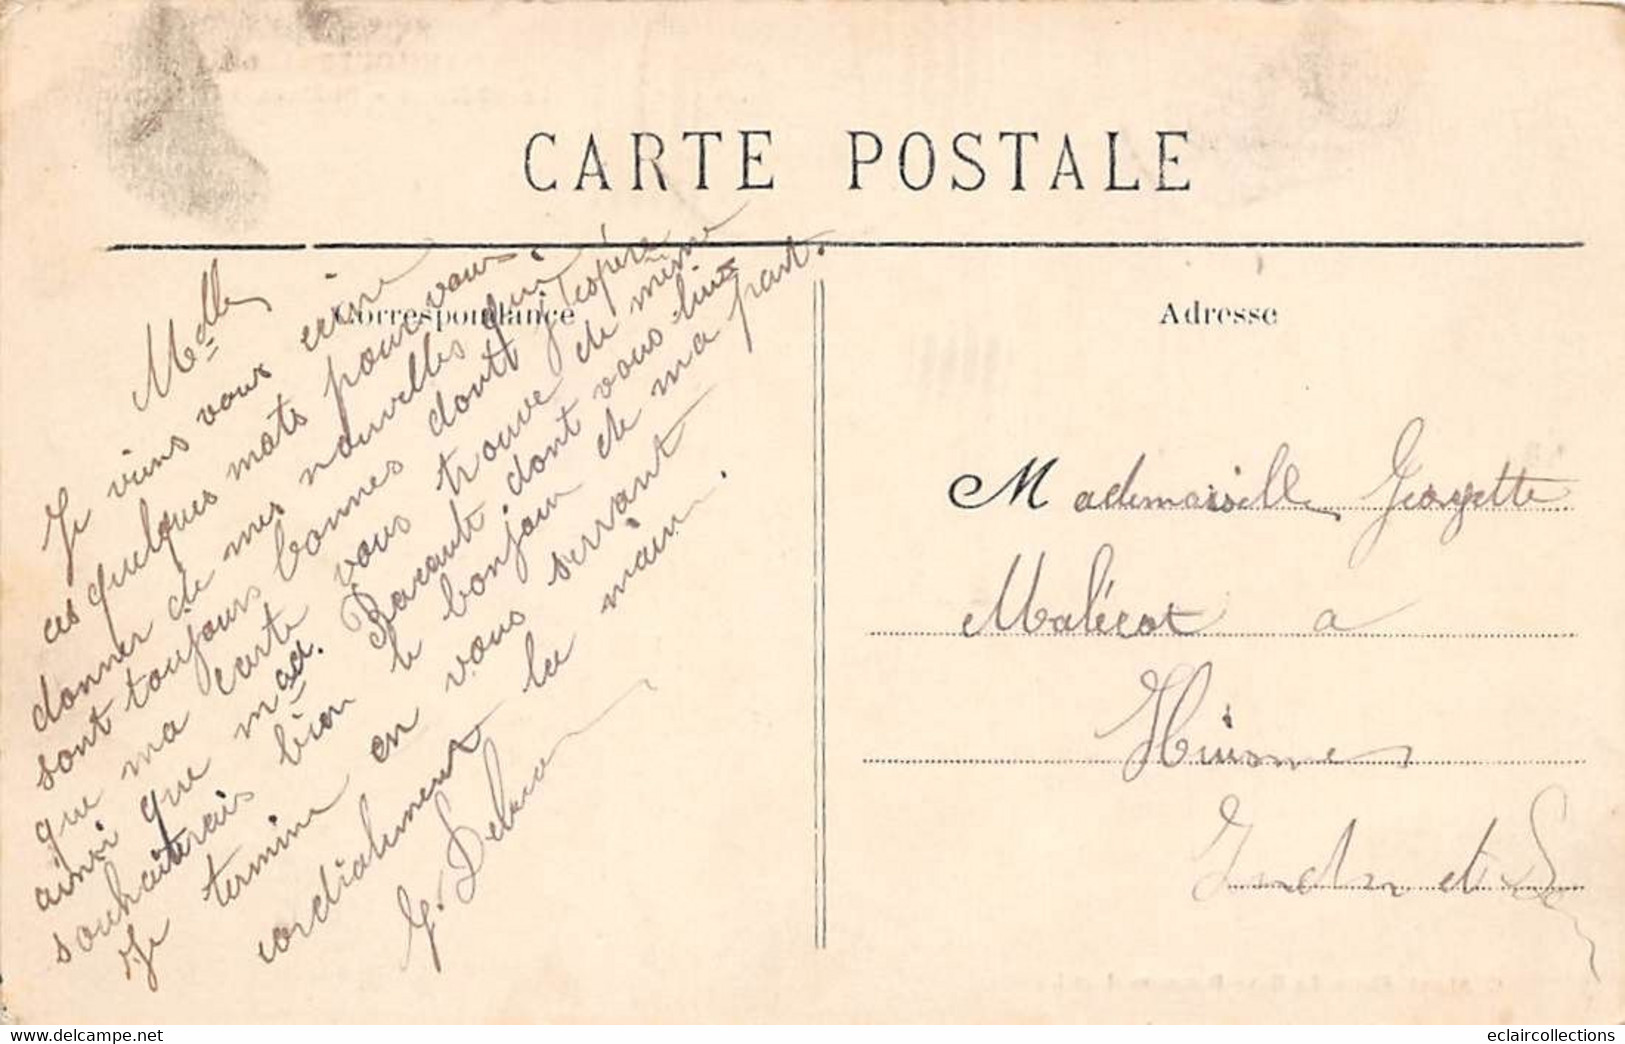 CARTE POSTALE
Correspondance
Adresse
Melle
Je viens vous écrire
ces quelques mots pour vous
donner de mes nouvelles qui
sont toujours bonnes dont j'espère
que ma carte vous trouve de même
ainsi que mad. dont vous lui
souhaiterais bien le bonjour de ma part.
Je termine en vous serrant
cordialement la main.
G.
Mademoiselle Georgette
Malécot a
Huismes
Indre et
eclaircollections